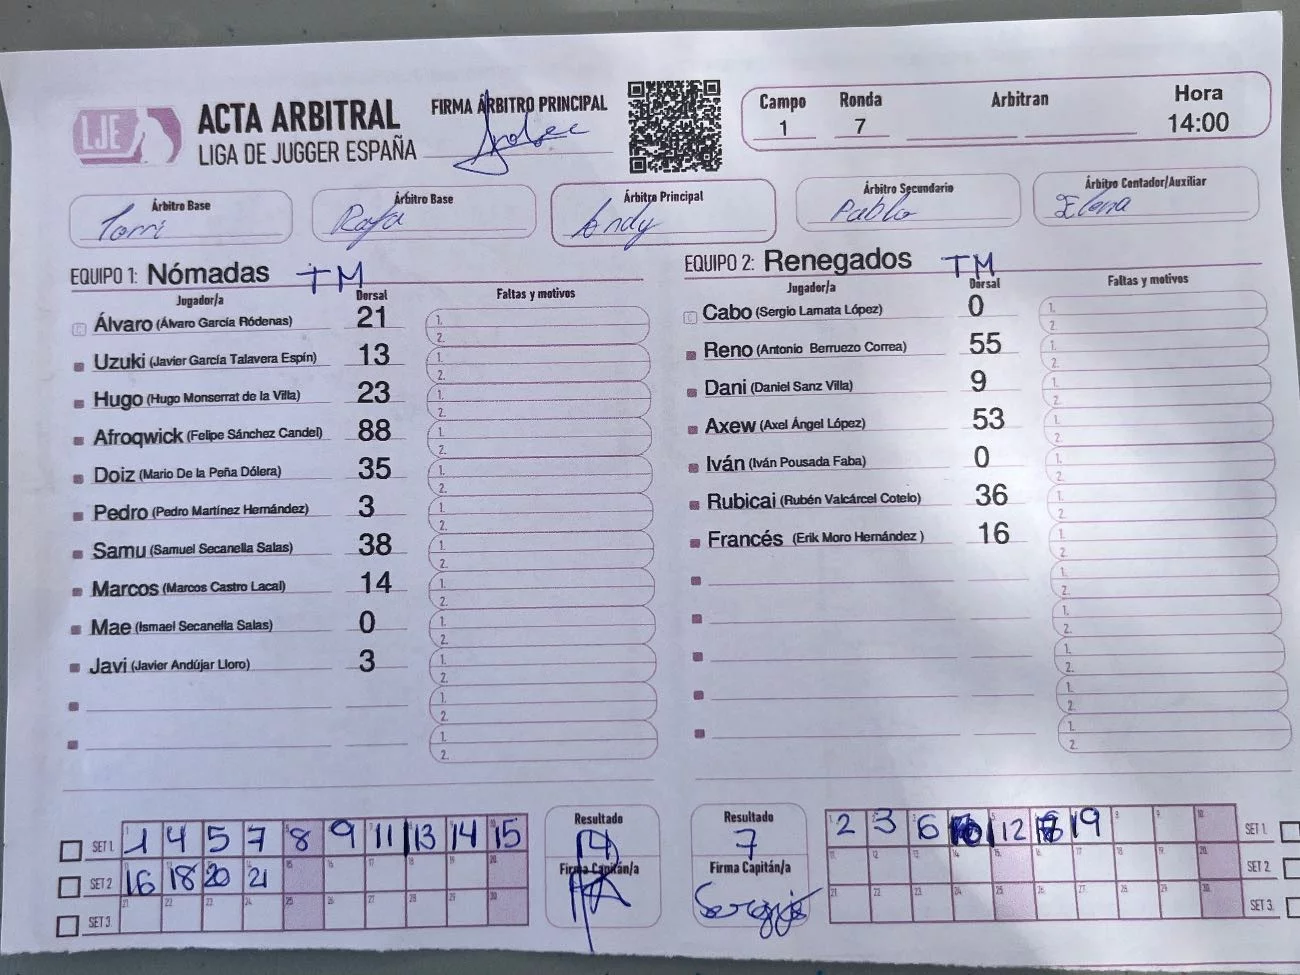 LJE
ACTA ARBITRAL
LIGA DE JUGGER ESPAÑA
FIRMA ÁRBITRO PRINCIPAL
Campo Ronda Arbitran Hora
1 7 14:00
Árbitro Base Árbitro Base Árbitro Principal Árbitro Secundario Árbitro Contador/Auxiliar
Torri Rafa Andy Pablo Elena
EQUIPO 1: Nómadas TM
Jugador/a Dorsal Faltas y motivos
Álvaro (Álvaro García Ródenas) 21 1. 2.
Uzuki (Javier García Talavera Espín) 13 1. 2.
Hugo (Hugo Monserrat de la Villa) 23 1. 2.
Afroqwick (Felipe Sánchez Candel) 88 1. 2.
Doiz (Mario De la Peña Dólera) 35 1. 2.
Pedro (Pedro Martínez Hernández) 3 1. 2.
Samu (Samuel Secanella Salas) 38 1. 2.
Marcos (Marcos Castro Lacal) 14 1. 2.
Mae (Ismael Secanella Salas) 0 1. 2.
Javi (Javier Andújar Lloro) 3 1. 2.
1. 2.
1. 2.
EQUIPO 2: Renegados TM
Jugador/a Dorsal Faltas y motivos
Cabo (Sergio Lamata López) 0 1. 2.
Reno (Antonio Berruezo Correa) 55 1. 2.
Dani (Daniel Sanz Villa) 9 1. 2.
Axew (Axel Ángel López) 53 1. 2.
Iván (Iván Pousada Faba) 0 1. 2.
Rubicai (Rubén Valcárcel Cotelo) 36 1. 2.
Francés (Erik Moro Hernández ) 16 1. 2.
1. 2.
1. 2.
1. 2.
1. 2.
1. 2.
SET 1. 1 4 5 7 8 9 11 13 14 15
SET 2 16 18 20 21 15 16 17 18 19 20
SET 3. 21 22 23 24 25 26 27 28 29 30
Resultado
14
Firma Capitán/a
Resultado
7
Firma Capitán/a
Sergio
2 3 6 10 12 19 8 9 10 SET 1.
11 12 13 14 15 16 17 18 19 20 SET 2
21 22 23 24 25 26 27 28 29 30 SET 3.